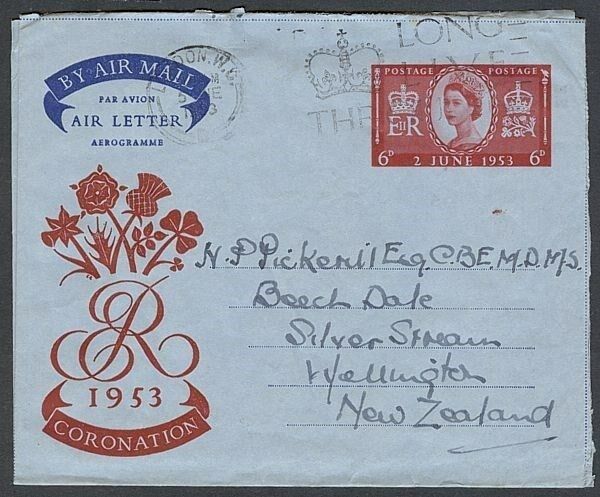 BY AIR MAIL
PAR AVION
AIR LETTER
AEROGRAMME
LONDON, W.C.
LONG
LIVE
THE
POSTAGE POSTAGE
E II R
6D 2 JUNE 1953 6D
H. P. Pickerill Esq C.B.E. M.D. M.S.
Beech Dale
Silver Stream
Wellington
New Zealand
ER
1953
CORONATION